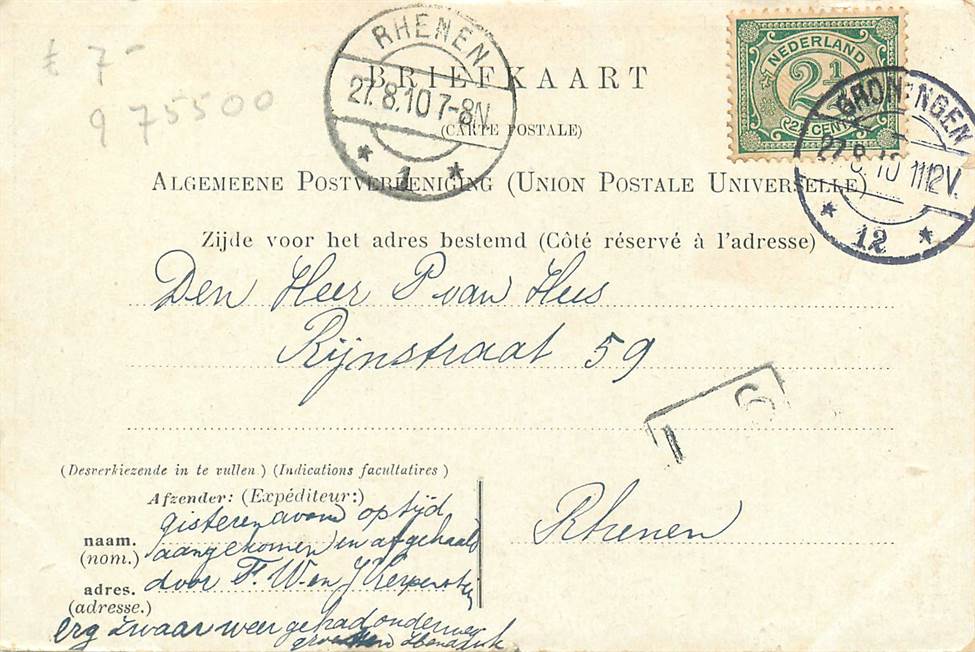 £ 7-
975500
RHENEN
27.8.10 7-8N.
1
NEDERLAND
2½
2½ CENT
GRONINGEN
27.8.10 11-12V.
12
BRIEFKAART
(CARTE POSTALE)
ALGEMEENE POSTVEREENIGING (UNION POSTALE UNIVERSELLE)
Zijde voor het adres bestemd (Côté réservé à l'adresse)
Den Heer P van Hus
Rijnstraat 59
(Desverkiezende in te vullen) (Indications facultatires)
Afzender: (Expéditeur:)
Rhenen
naam.
(nom.)
adres.
(adresse.)
gisterenavond op tijd
aangekomen en afgehaald
door F. W. en J
erg zwaar weer gehad onderweg